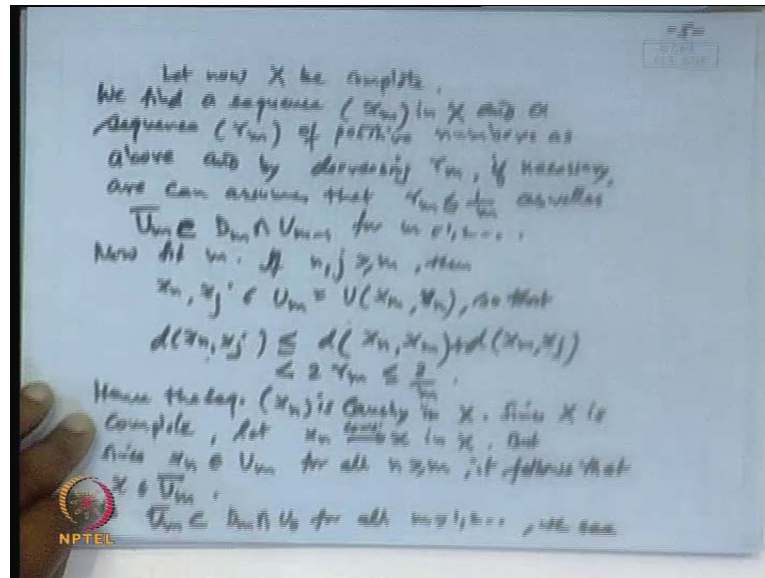 -5-
Let now X be complete.
We find a sequence (x_m) in X and a
sequence (r_m) of positive numbers as
above and by decreasing r_m, if necessary,
we can assume that r_m ≤ 1/m as well as
U̅_m ⊂ D_m ∩ U_{m-1} for m=1,2,...
Now fix m. If n,j ≥ m, then
x_n, x_j ∈ U_m = U(x_m, r_m), so that
d(x_n, x_j) ≤ d(x_n, x_m) + d(x_m, x_j)
< 2 r_m ≤ 2/m.
Hence the seq. (x_n) is Cauchy in X. Since X is
complete, let x_n → x in X. But
since x_n ∈ U_m for all n ≥ m, it follows that
x ∈ U̅_m.
U̅_m ⊂ D_m ∩ U_0 for all m=1,2,..., we see
NPTEL